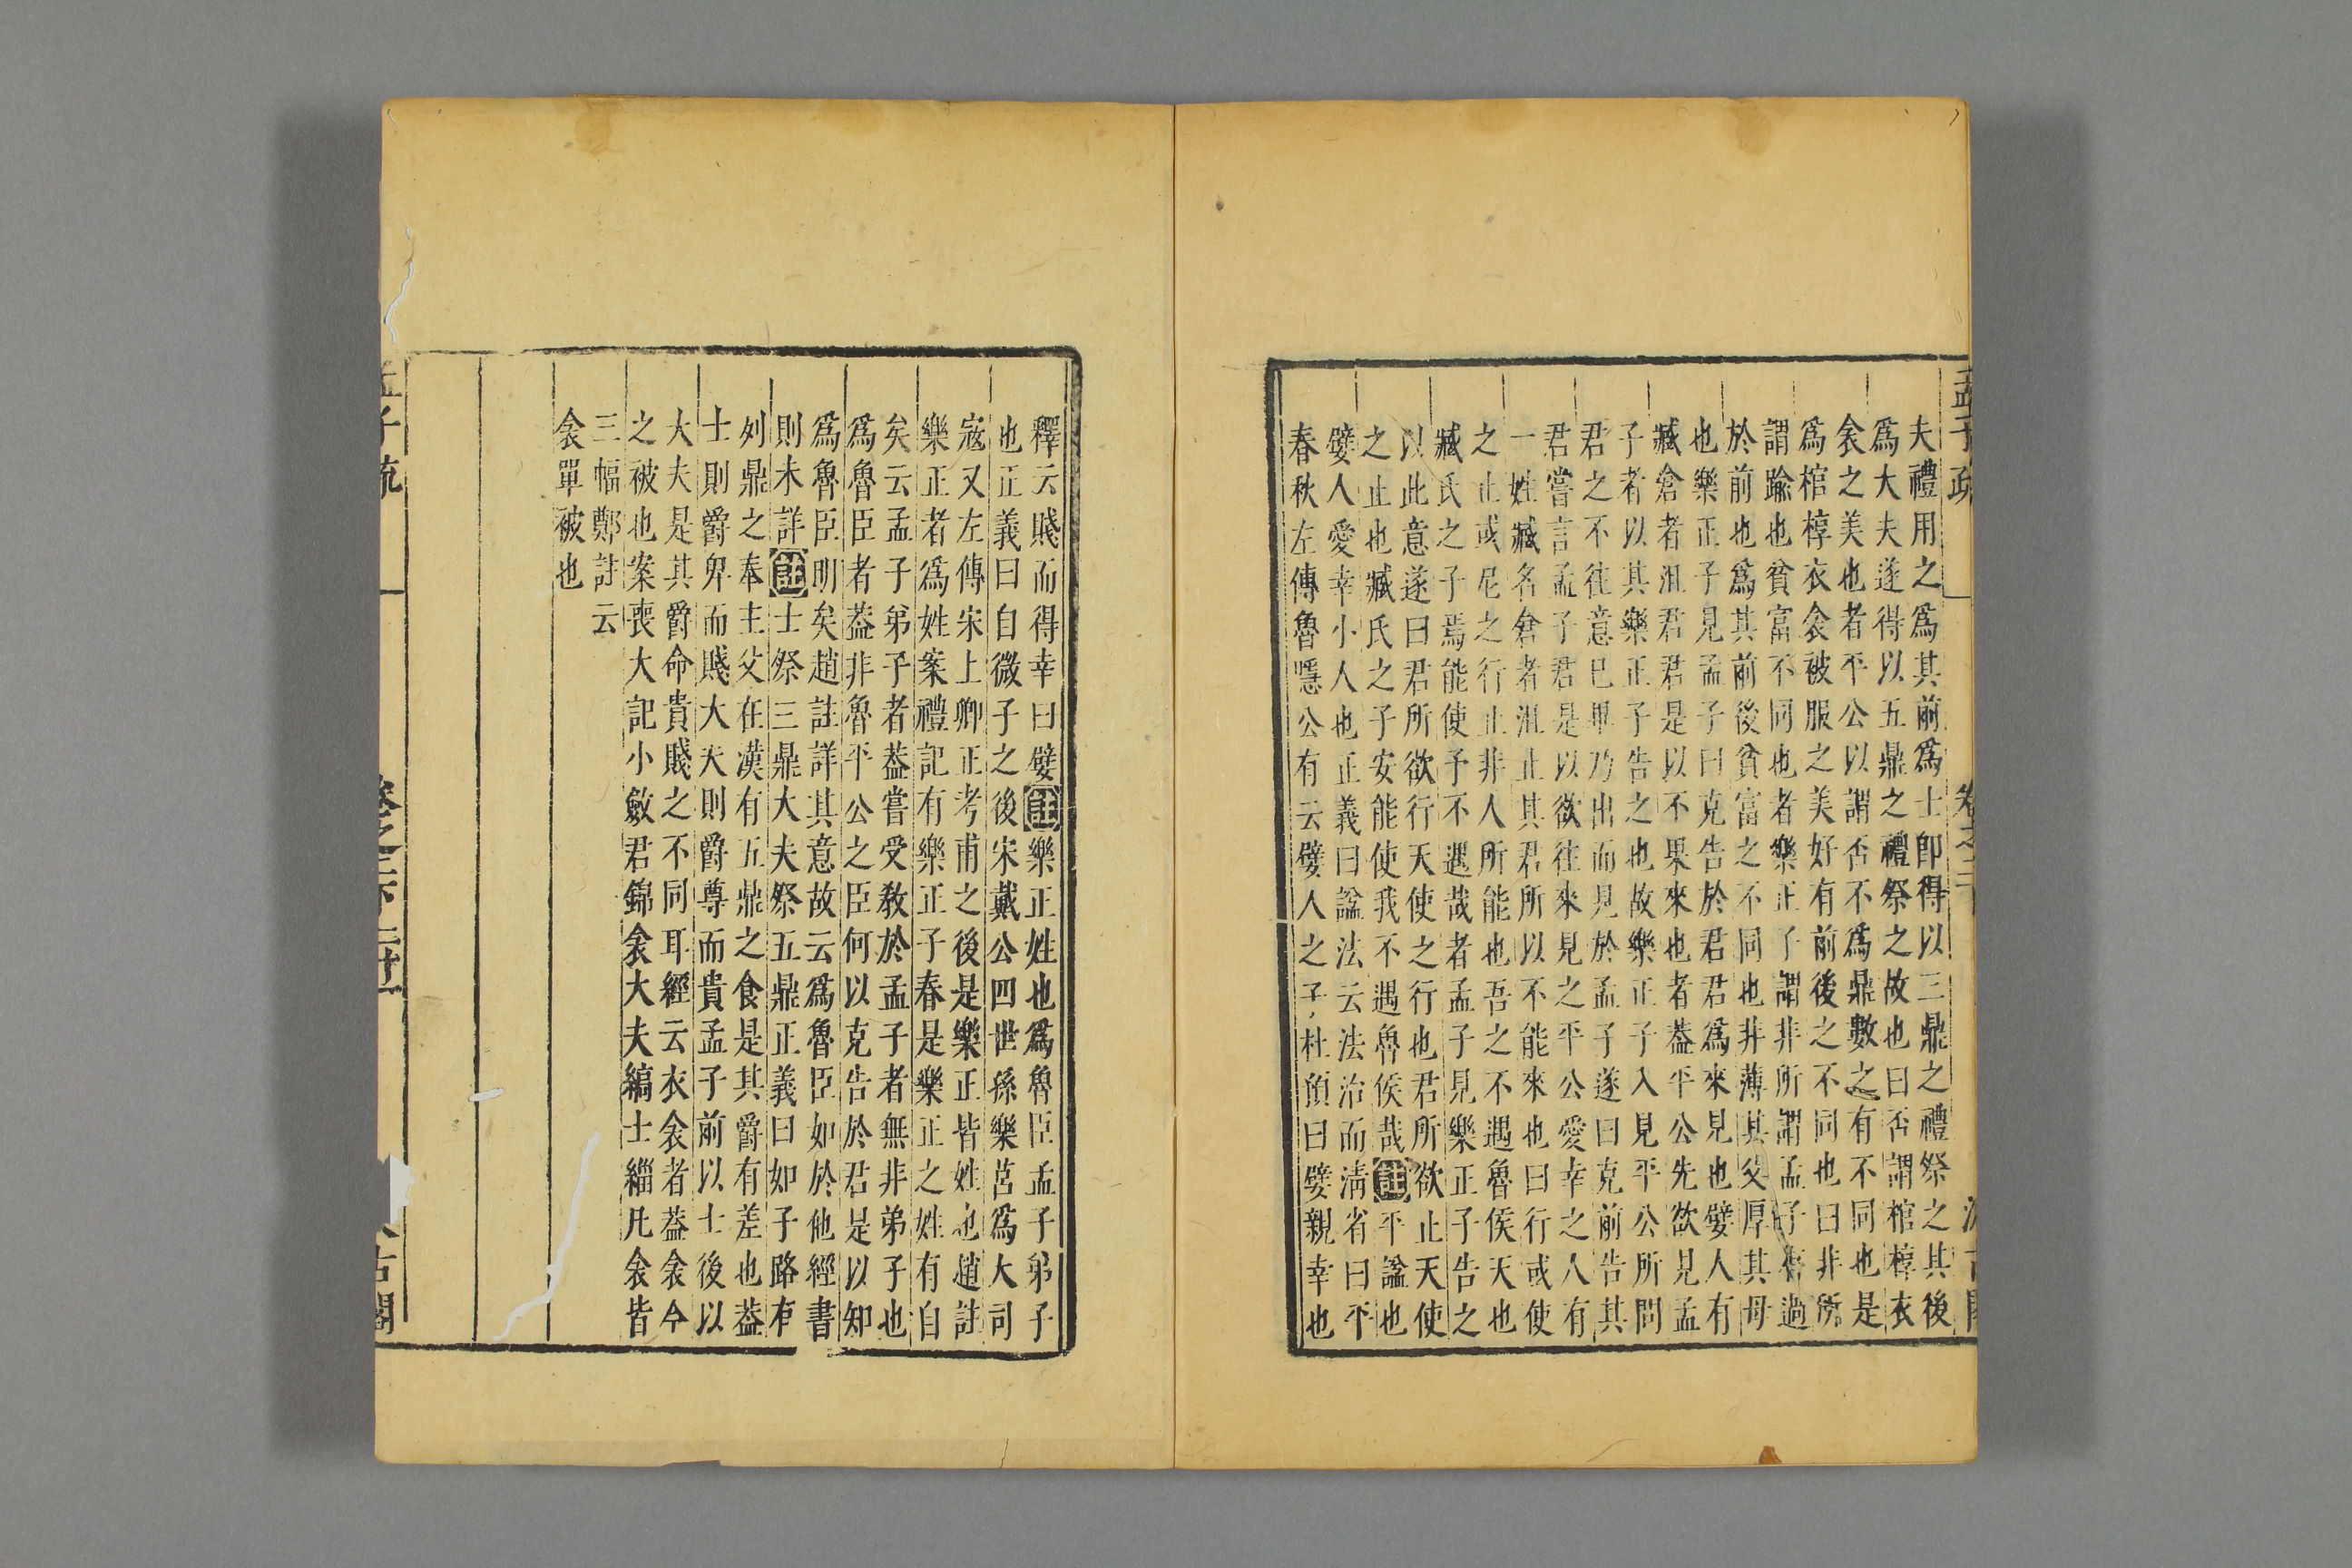 孟子疏
卷之二
夫禮用之爲其前爲士卽得以三鼎之禮祭之其後
爲大夫遂得以五鼎之禮祭之故也曰否謂棺椁衣
衾之美也者平公以謂否不爲鼎數之有不同也是
爲棺椁衣衾被服之美好有前後之不同也曰非所
謂踰也貧富不同也者樂正子謂非所謂孟子過
於前也爲其前後貧富之不同也非薄其父厚其母
也樂正子見孟子曰克告於君君爲來見也嬖人有
臧倉者沮君君是以不果來也者葢平公先欲見孟
子者以其樂正子告之也故樂正子入見平公所問
君之不往意已畢乃出而見於孟子遂曰克前告其
君嘗言孟子君是以欲往來見之平公愛幸之人有
一姓臧名倉者沮止其君所以不能來也曰行或使
之止或尼之行止非人所能也吾之不遇魯侯天也
臧氏之子焉能使予不遇哉者孟子見樂正子告之
以此意遂曰君所欲行天使之行也君所欲止天使
之止也臧氏之子安能使我不遇魯侯哉註平謚也
嬖人愛幸小人也正義曰謚法云法治而淸省曰平
春秋左傳魯隱公有云嬖人之子杜預曰嬖親幸也
釋云賤而得幸曰嬖註樂正姓也爲魯臣孟子弟子
也正義曰自微子之後宋戴公四世孫樂莒爲大司
寇又左傳宋上卿正考甫之後是樂正皆姓也趙註
樂正者爲姓案禮記有樂正子春是樂正之姓有自
矣云孟子弟子者葢嘗受敎於孟子者無非弟子也
爲魯臣者葢非魯平公之臣何以克告於君是以知
爲魯臣明矣趙註詳其意故云爲魯臣如於他經書
則未詳註士祭三鼎大夫祭五鼎正義曰如子路有
列鼎之奉主父在漢有五鼎之食是其爵有差也葢
士則爵卑而賤大夫則爵尊而貴孟子前以士後以
大夫是其爵命貴賤之不同耳經云衣衾者葢衾今
之被也案喪大記小斂君錦衾大夫縞士緇凡衾皆
三幅鄭註云
衾單被也
子疏
古閣